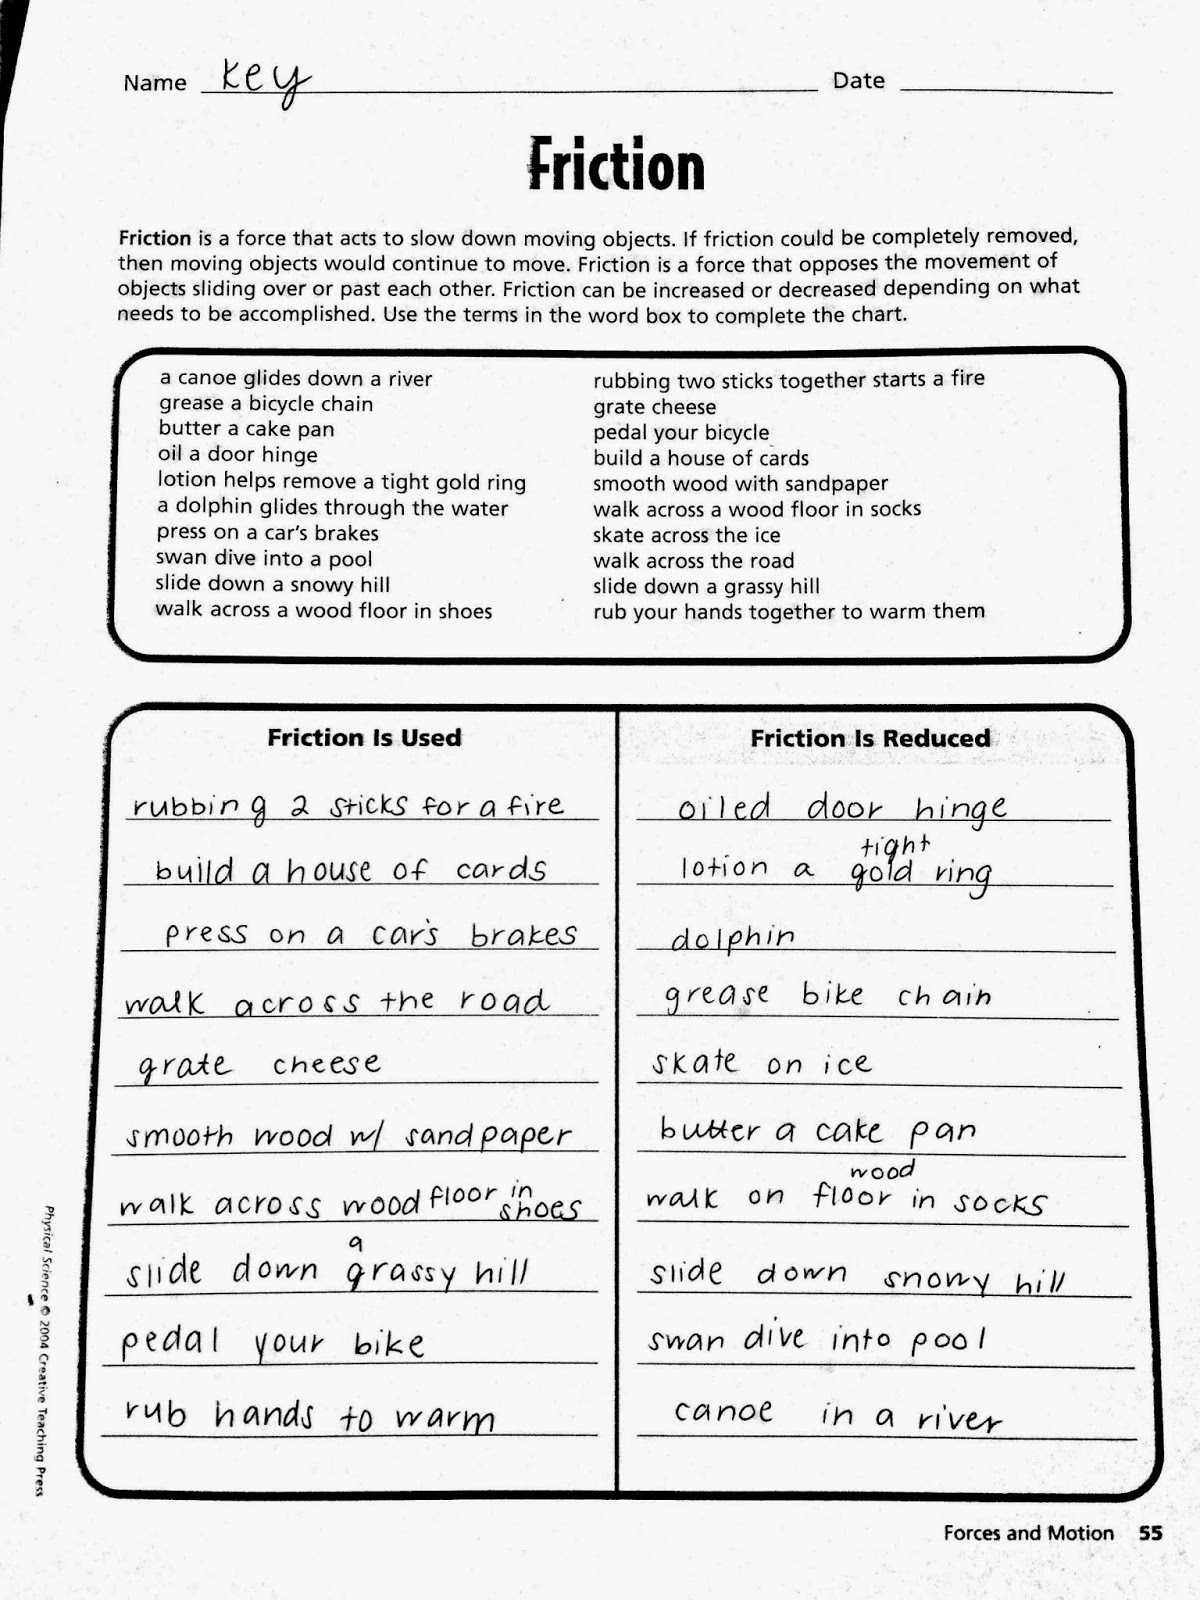 Name Key Date
Friction
Friction is a force that acts to slow down moving objects. If friction could be completely removed,
then moving objects would continue to move. Friction is a force that opposes the movement of
objects sliding over or past each other. Friction can be increased or decreased depending on what
needs to be accomplished. Use the terms in the word box to complete the chart.
a canoe glides down a river
grease a bicycle chain
butter a cake pan
oil a door hinge
lotion helps remove a tight gold ring
a dolphin glides through the water
press on a car's brakes
swan dive into a pool
slide down a snowy hill
walk across a wood floor in shoes
rubbing two sticks together starts a fire
grate cheese
pedal your bicycle
build a house of cards
smooth wood with sandpaper
walk across a wood floor in socks
skate across the ice
walk across the road
slide down a grassy hill
rub your hands together to warm them
Friction Is Used
rubbing 2 sticks for a fire
build a house of cards
press on a car's brakes
walk across the road
grate cheese
smooth wood w/ sandpaper
walk across wood floor in shoes
slide down a grassy hill
pedal your bike
rub hands to warm
Friction Is Reduced
oiled door hinge
lotion a tight gold ring
dolphin
grease bike chain
skate on ice
butter a cake pan
walk on wood floor in socks
slide down snowy hill
swan dive into pool
canoe in a river
Physical Science © 2004 Creative Teaching Press
Forces and Motion 55